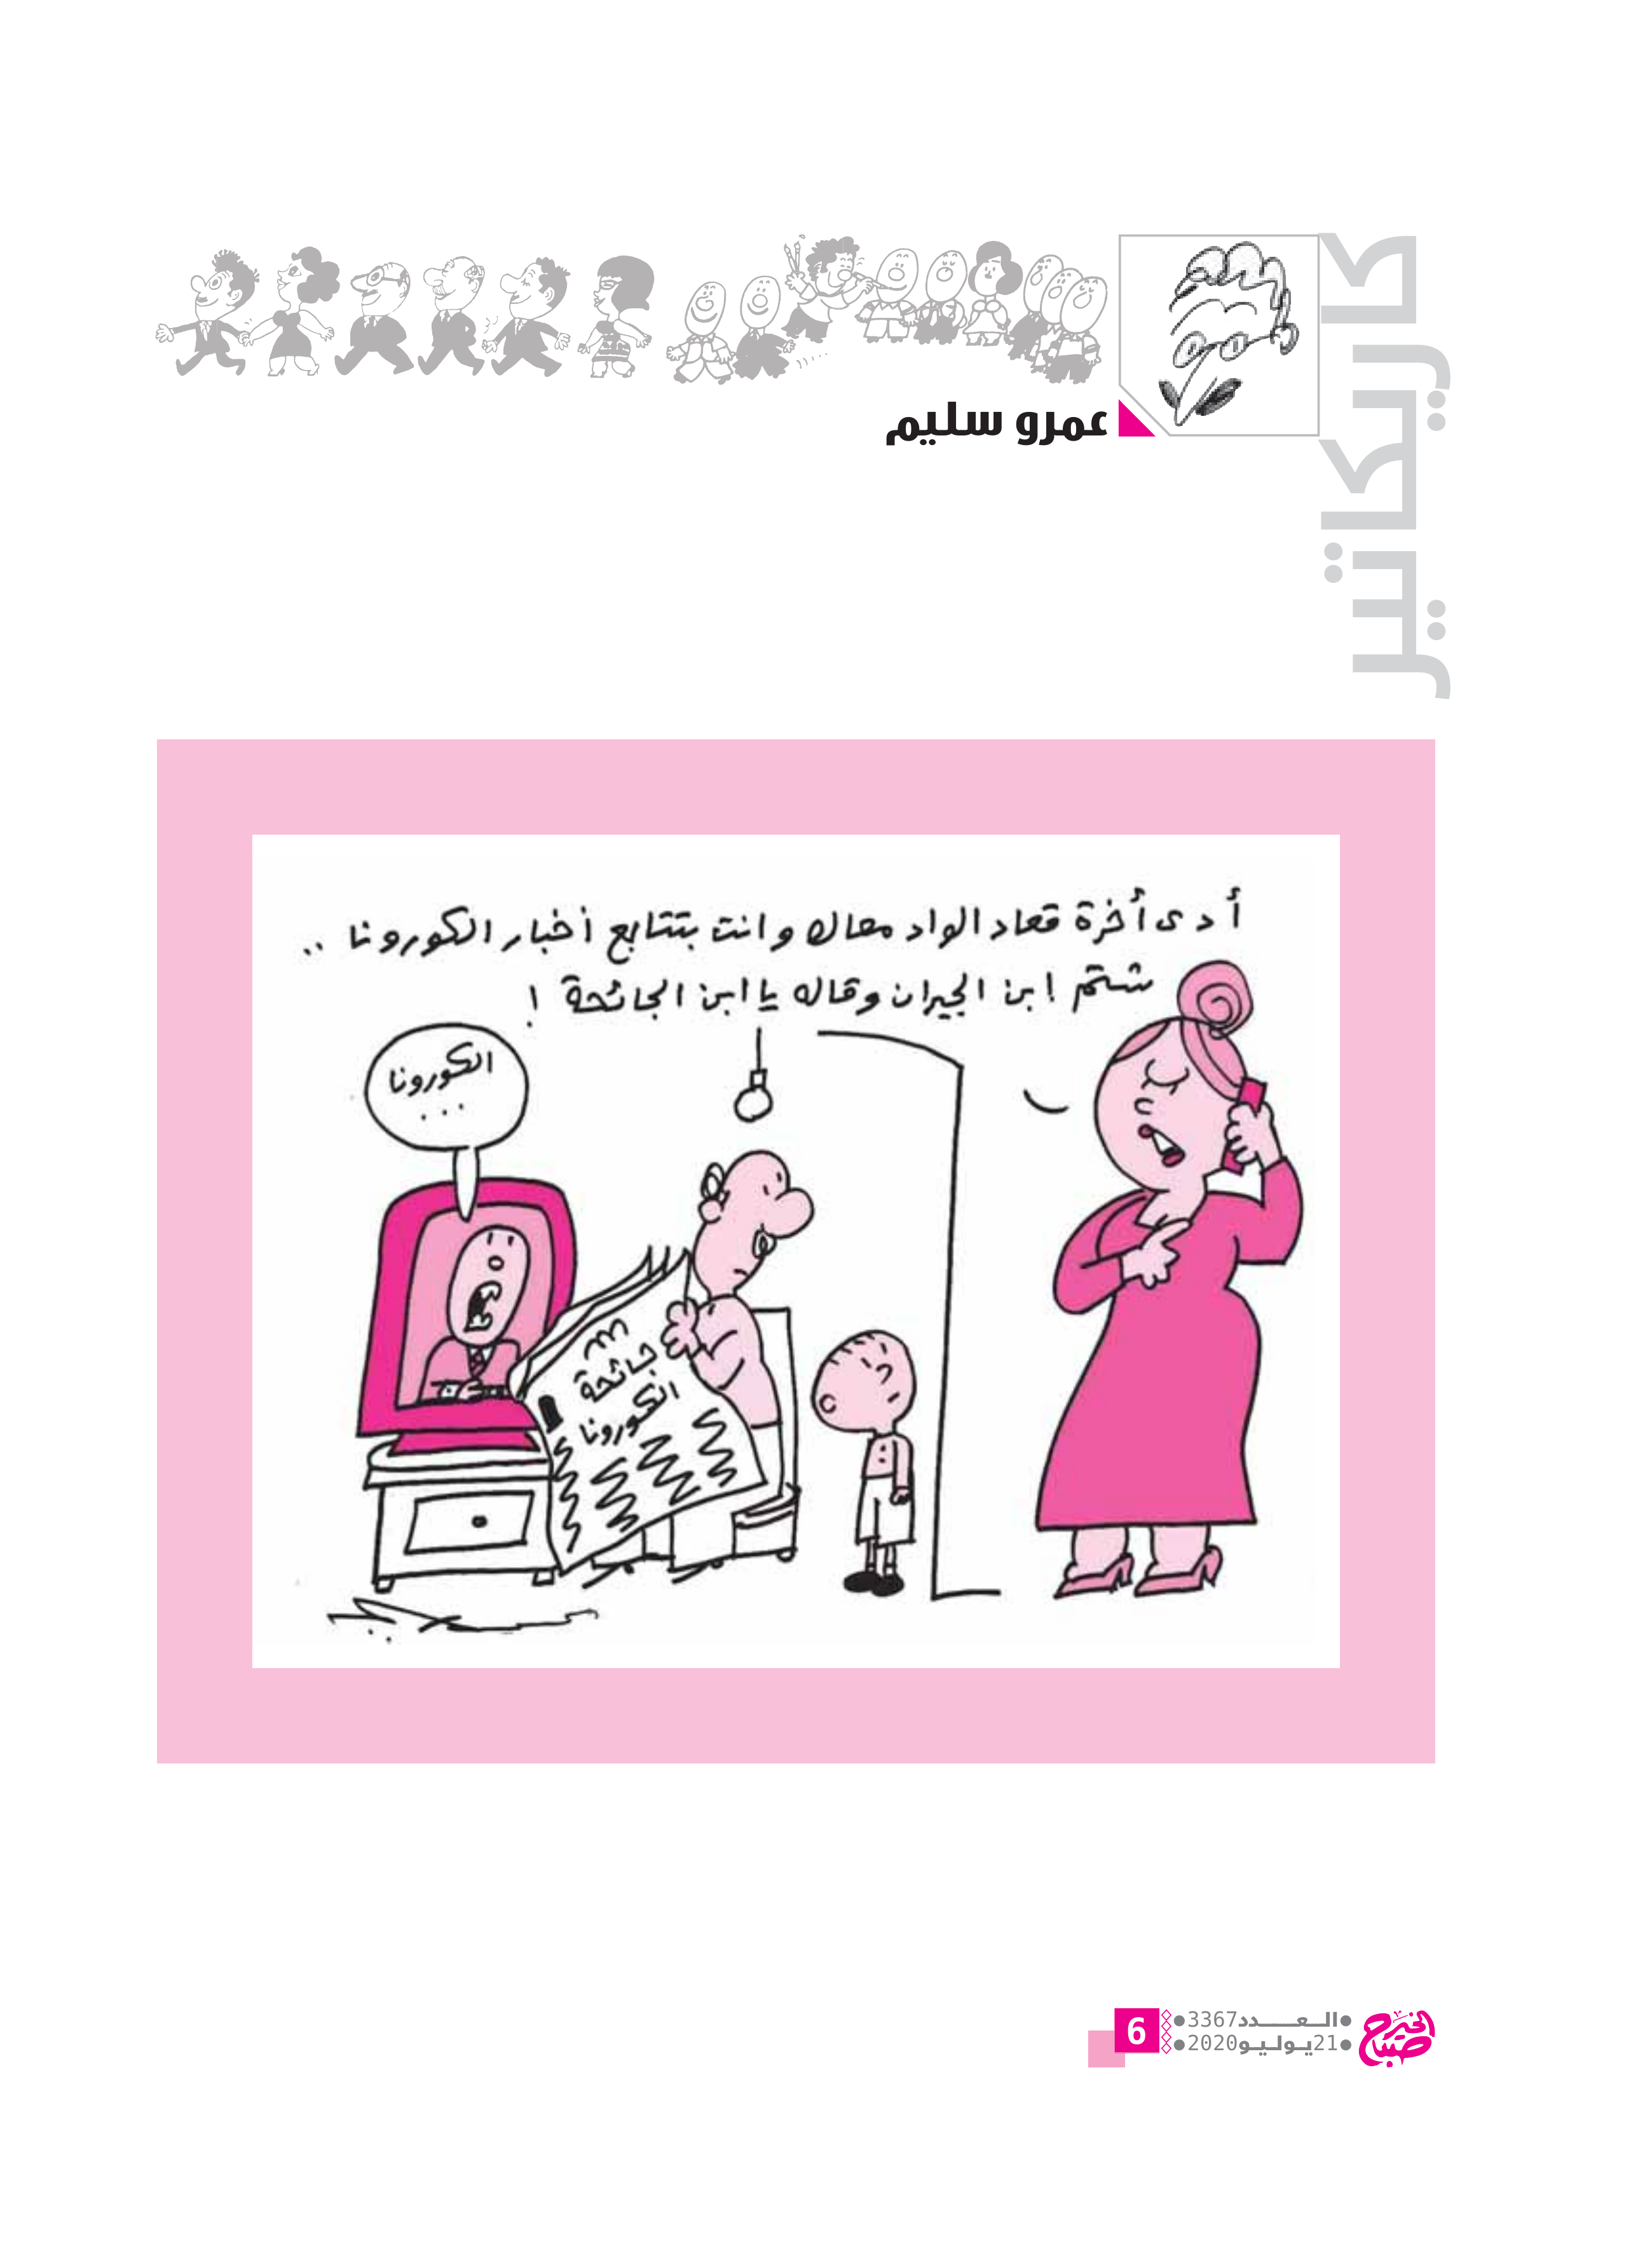 كاريكاتير
عمرو سليم
أدى أخرة قعاد الواد معاك وانت بتتابع أخبار الكورونا ..
شتم ابن الجيران وقاله يا ابن الجائحة !
الكورونا
...
جائحة
الكورونا
صباح الخير
العـــدد3367
21يـوليـو2020
6